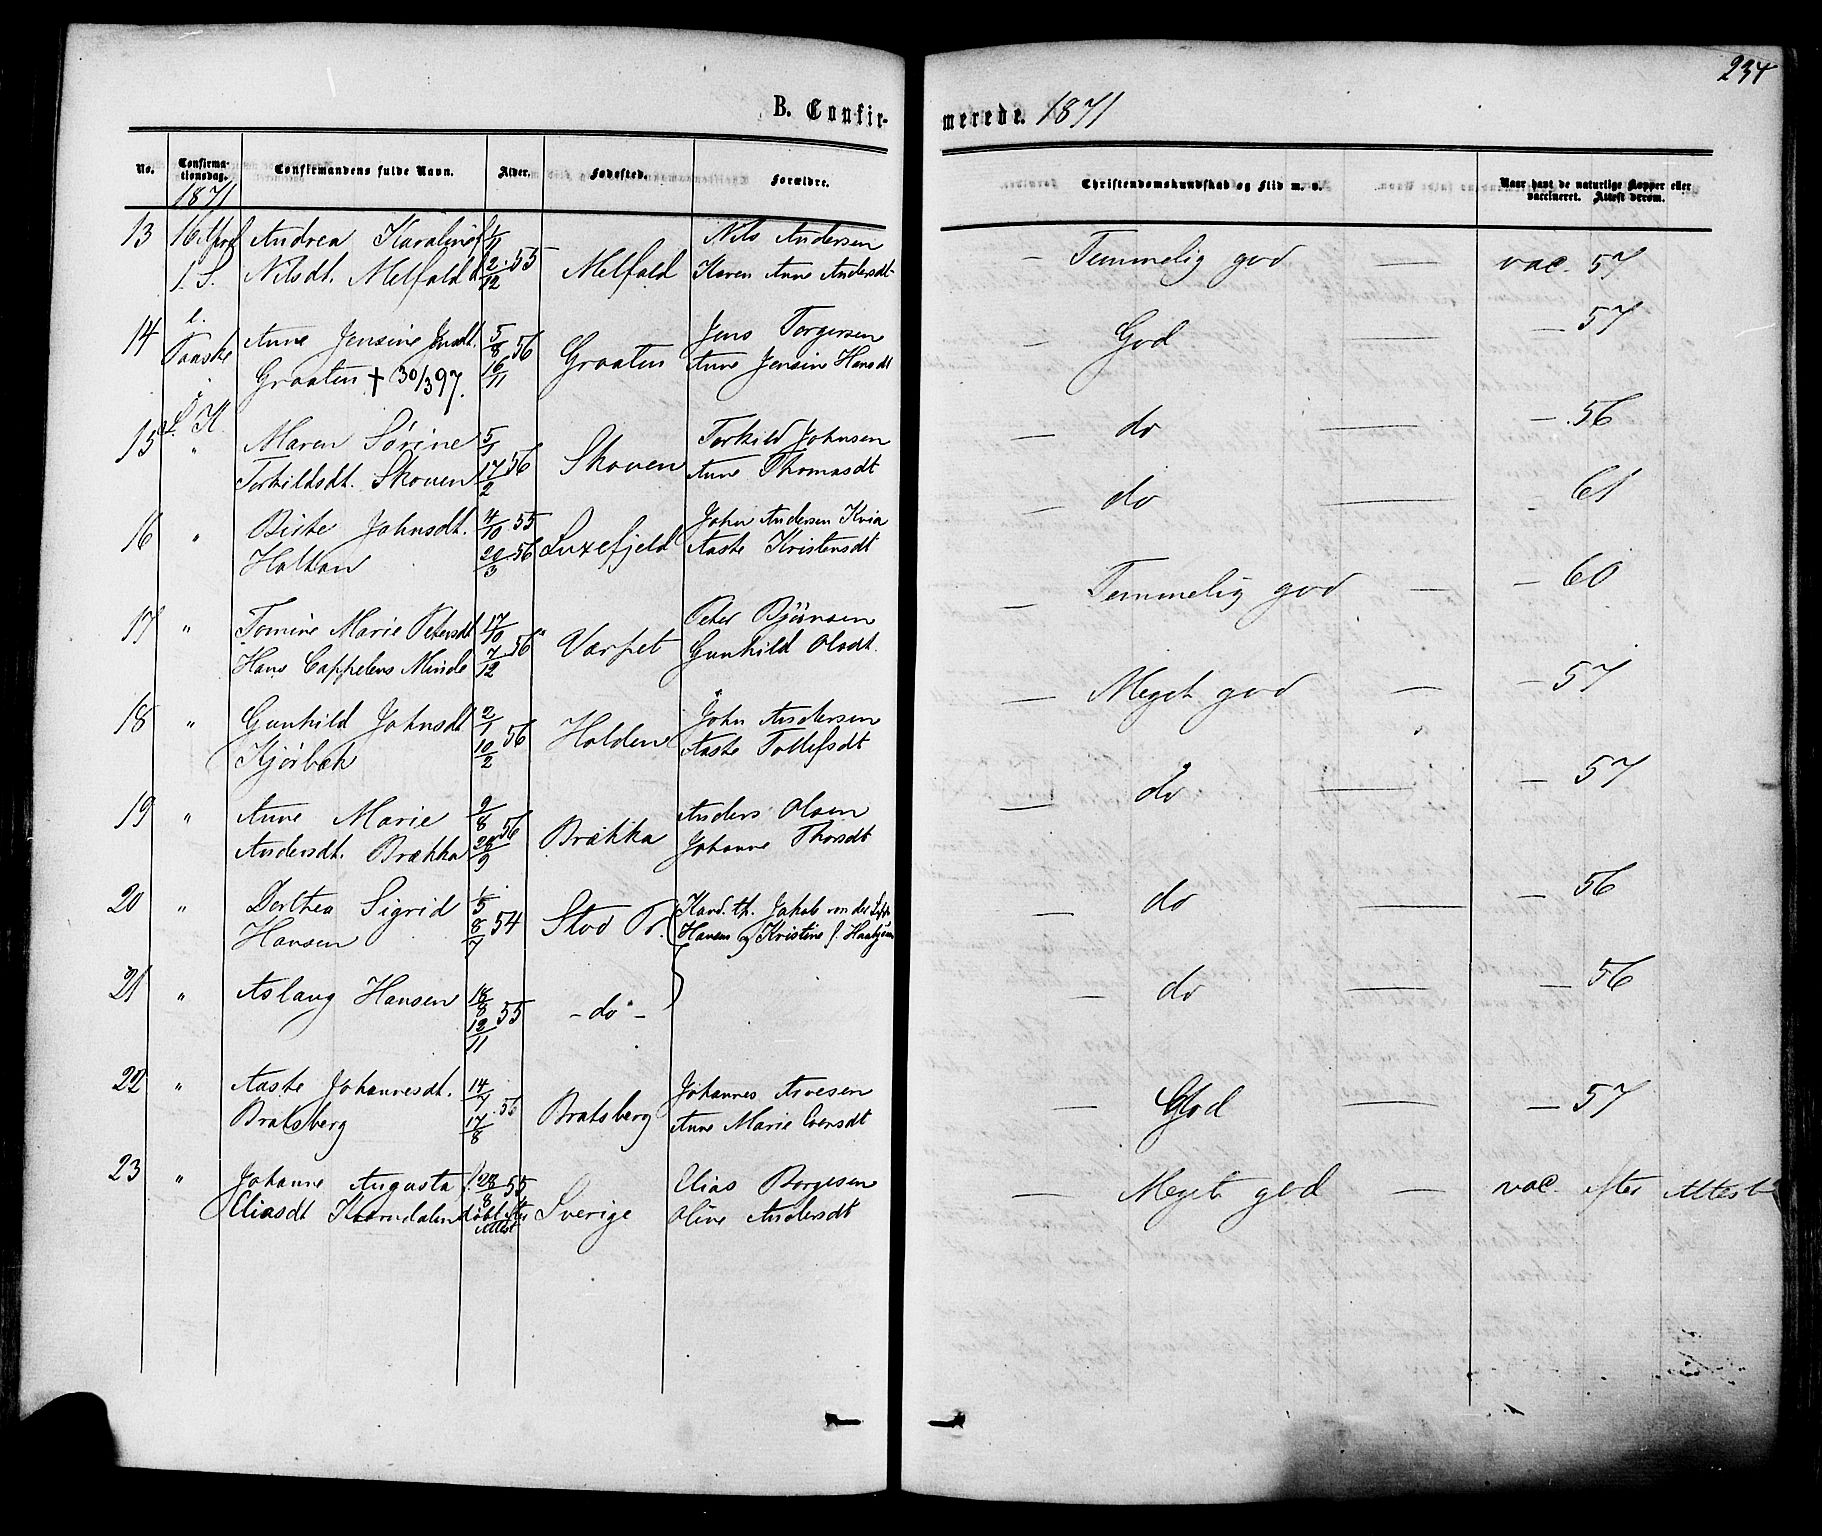 234
B. Confirmerede. 1871
No. Confirmationsdag. Confirmandens fulde Navn. Alder. Fødested. Forældre. Christendomskundskab og Flid m. v. Naar havt de naturlige Kopper eller vaccineret. Attest derom.
1871
13 16 April Andrea Karoline f. 1/11 Nils Andersen
1. S. Nilsdt. Melfald d. 2/12 55 Melfald Karen Anne Andersdt — Temmelig god — vac. 57
14 e. Paaske Anne Jensine Jensdt. 5/8 56 Graaten Jens Torgersen — God — 57
Graaten + 30/3 97. 16/11 Anne Jensine Hansdt
15 " Maren Sørine 5/1 Skoven Torkild Johnsen — do — — 56
Torkildsdt. Skoven 17/2 56 Anne Thomasdt
16 " Birte Johnsdt. 4/10 55 Luxefjeld John Andersen Kvia — do — — 61
Holtan 20/3 56 Aaste Kristensdt
17 " Tomine Marie Petersdt 17/10 Varpet Peter Bjørnsen — Temmelig god — — 60
Hans Cappelens Minde 7/12 56 Gunhild Olsdt.
18 " Gunhild Johnsdt 2/1 Holden John Andersen — Meget god — — 57
Kjørbæk 10/2 56 Aaste Tollefsdt
19 " Anne Marie 9/8 Brækka Anders Olsen — do — — 57
Andersdt. Brækka 28/9 56 Johanne Thorsdt
20 " Dorthea Sigrid 1/5 Stod Pr. Kand. th. Jakob von der — do — — 56
Hansen 8/7 54 Hansen og Kristine f.
21 " Aslaug Hansen 18/8 — do — — do — — 56
12/11 55
22 " Aaste Johannesdt. 14/7 Bratsberg Johannes Arvesen — God — — 57
Bratsberg 17/8 56 Anne Marie Evensdt
23 " Johanne Augusta f. 28/8 55 Sverige Elias Borgesen — Meget god — vac. efter Attest
Eliasdt døbt efter Attest Oline Andersdt